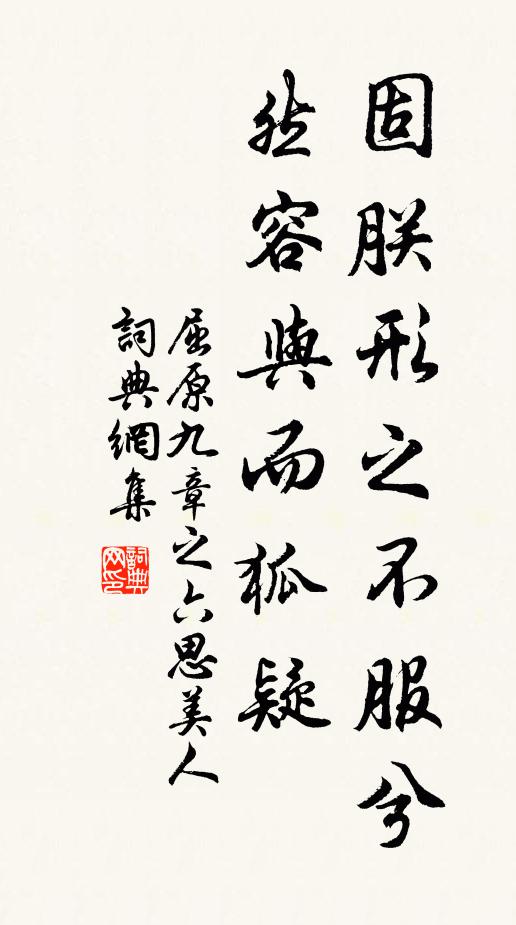 固朕形之不服兮
然容與而狐疑
屈原九章之六思美人
詞典網集
詞典
网印